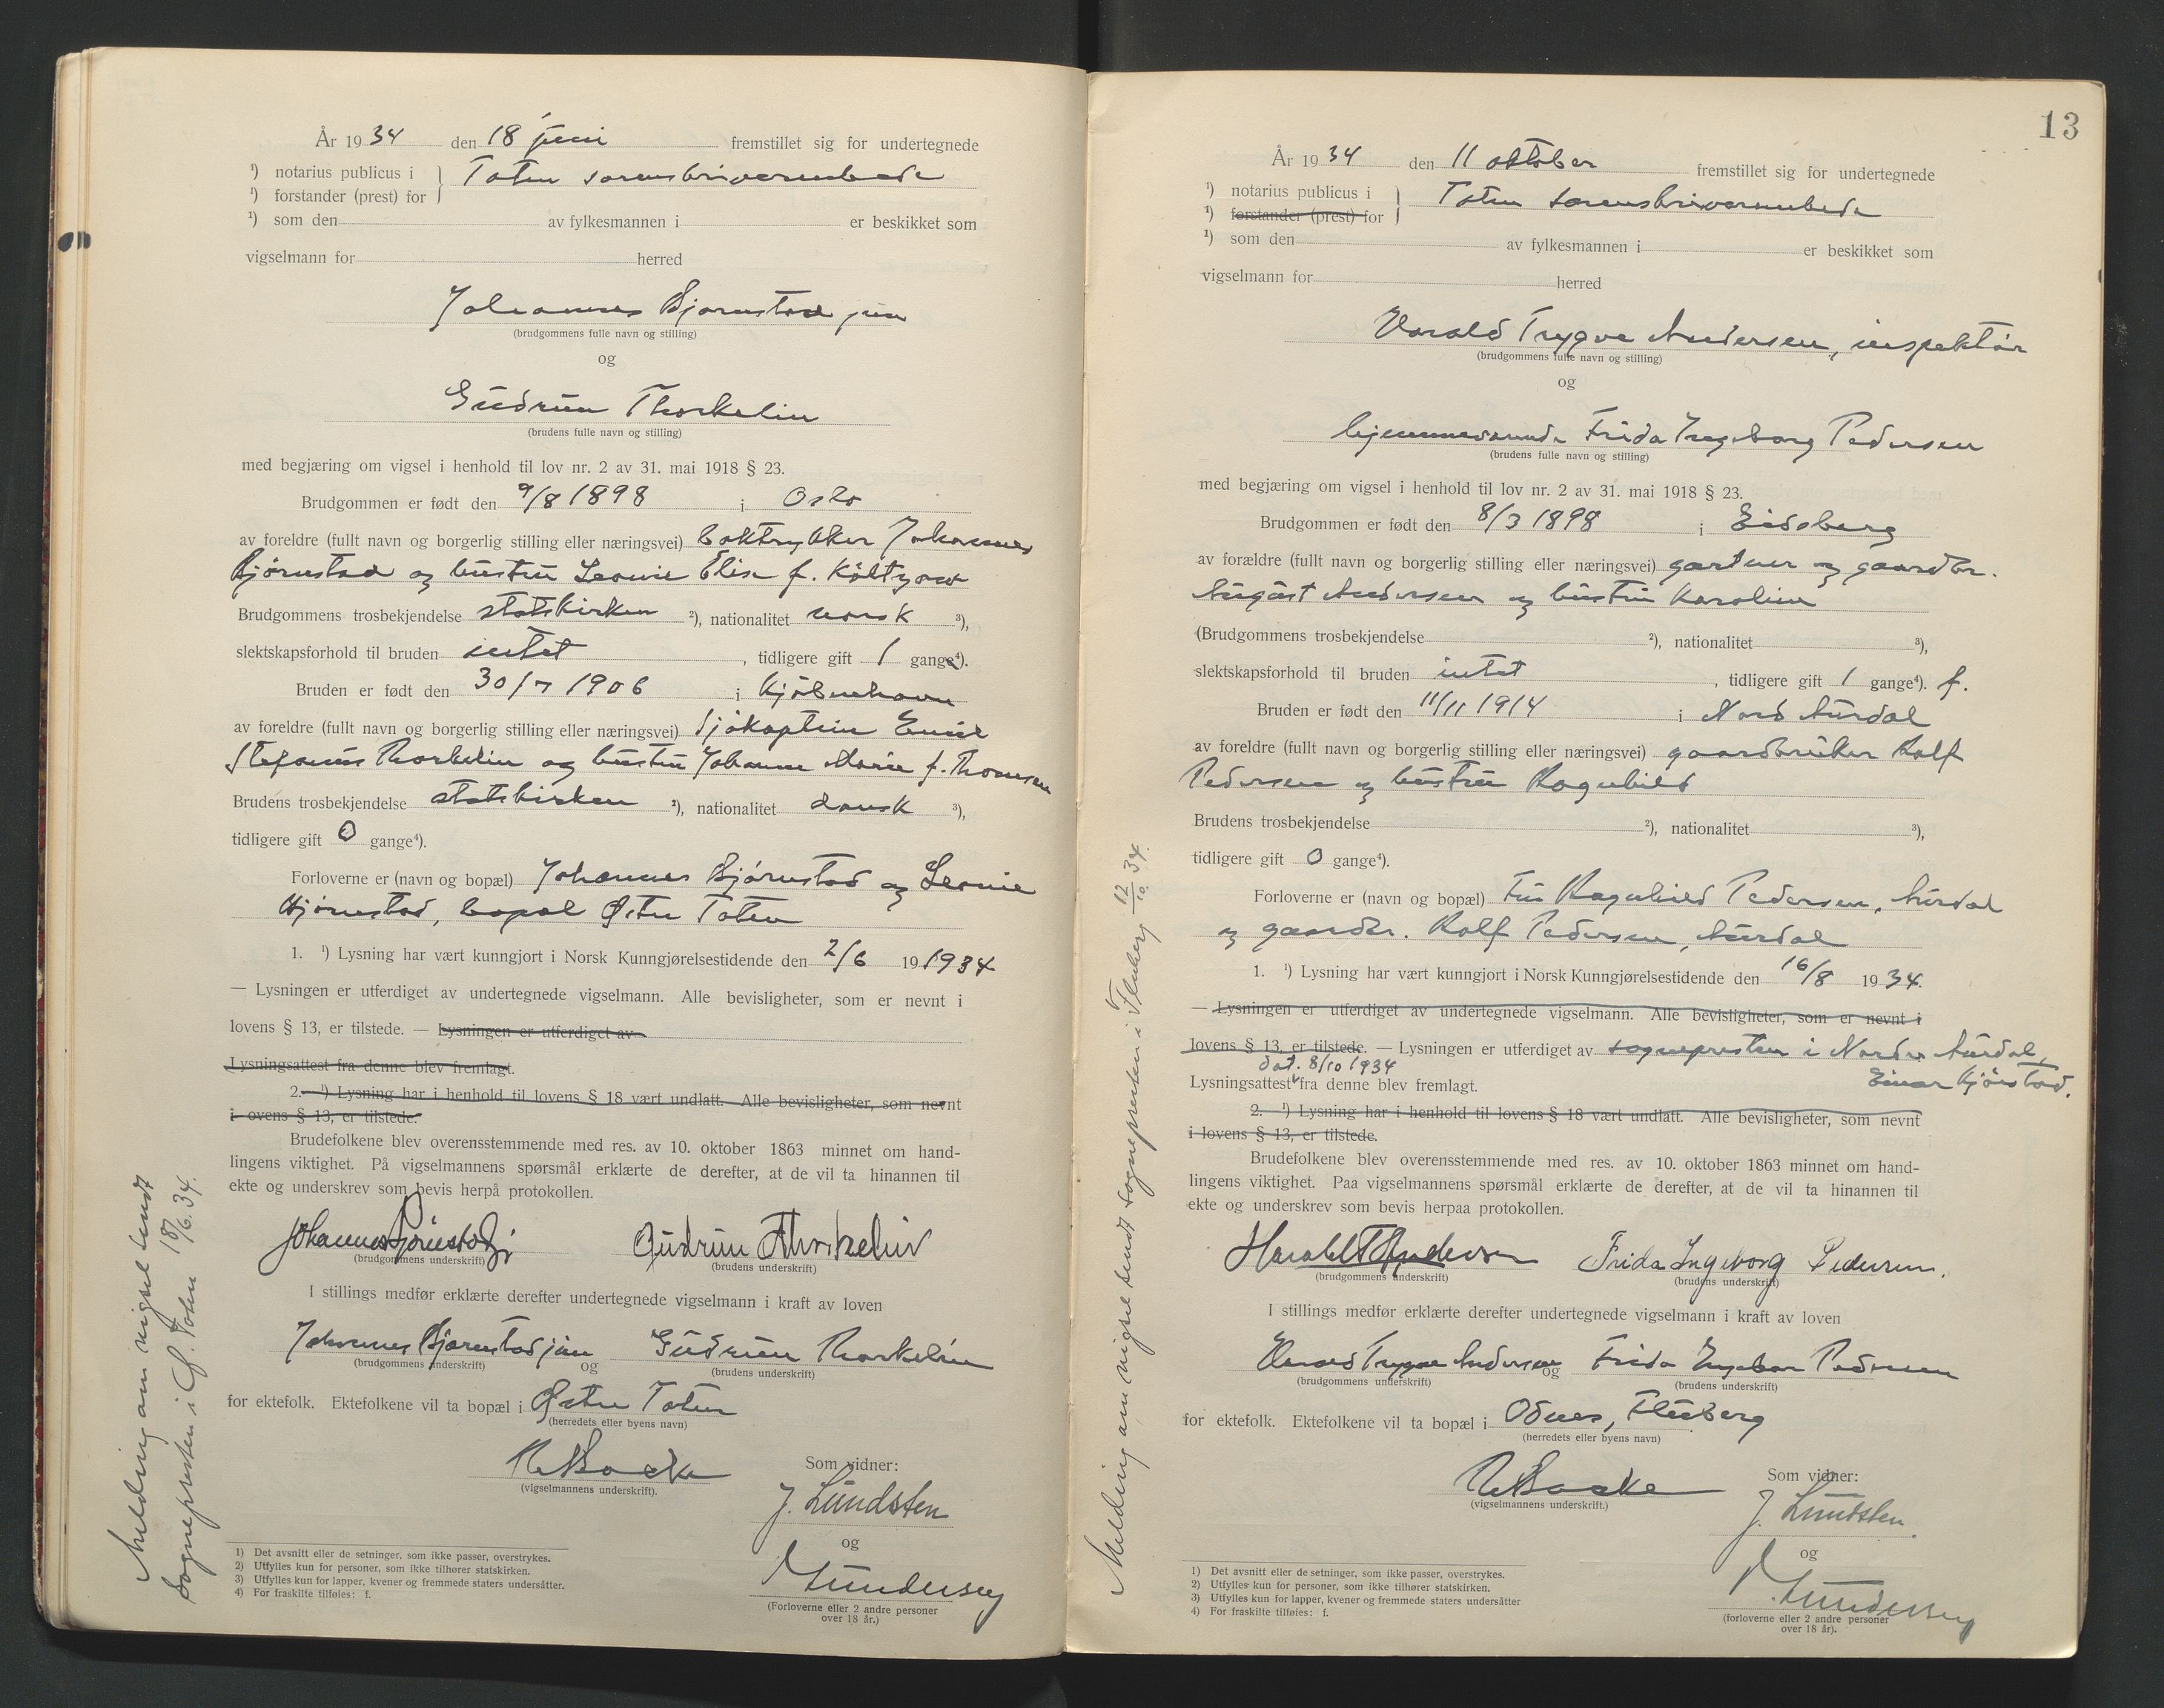 År 1934 den 18 juni fremstillet sig for undertegnede
¹) notarius publicus i } Toten sorenskriverembede
¹) forstander (prest) for
¹) som den av fylkesmannen i er beskikket som
vigselmann for herred
Johannes Bjørnstad jun
(brudgommens fulle navn og stilling)
og
Gudrun Thorkelin
(brudens fulle navn og stilling)
med begjæring om vigsel i henhold til lov nr. 2 av 31. mai 1918 § 23.
Brudgommen er født den 9/8 1898 i Oslo
av foreldre (fullt navn og borgerlig stilling eller næringsvei) boktrykker Johannes
Bjørnstad og hustru Leonie Elise f.
Brudgommens trosbekjendelse statskirken ²), nationalitet norsk ³),
slektskapsforhold til bruden intet , tidligere gift 1 gange⁴).
Bruden er født den 30/7 1906 i Kjøbenhavn
av foreldre (fullt navn og borgerlig stilling eller næringsvei) sjøkaptein Emil
Stefanus Thorkelin og hustru Johanne Marie f. Thomsen
Brudens trosbekjendelse statskirken ²), nationalitet dansk ³),
tidligere gift 0 gange⁴).
Forloverne er (navn og bopæl) Johannes Bjørnstad og Leonie
Bjørnstad, bopæl Østre Toten
1. ¹) Lysning har vært kunngjort i Norsk Kunngjørelsestidende den 2/6 19 1934
— Lysningen er utferdiget av undertegnede vigselmann. Alle bevisligheter, som er nevnt i
lovens § 13, er tilstede. — Lysningen er utferdiget av
Lysningsattest fra denne blev fremlagt.
2. ¹) Lysning har i henhold til lovens § 18 vært undlatt. Alle bevisligheter, som nevnt
i ovens § 13, er tilstede.
Brudefolkene blev overensstemmende med res. av 10. oktober 1863 minnet om hand-
lingens viktighet. På vigselmannens spørsmål erklærte de derefter, at de vil ta hinannen til
ekte og underskrev som bevis herpå protokollen.
Johannes Bjørnstad j Gudrun Thorkelin
(brudgommens underskrift) (brudens underskrift)
I stillings medfør erklærte derefter undertegnede vigselmann i kraft av loven
Johannes Bjørnstad jun og Gudrun Thorkelin
(brudgommens underskrift) (brudens underskrift)
for ektefolk. Ektefolkene vil ta bopæl i Østre Toten
(herredets eller byens navn)
(vigselmannens underskrift).
Som vidner:
J. Lundsten
og
(Forloverne eller 2 andre personer
over 18 år.)
1) Det avsnitt eller de setninger, som ikke passer, overstrykes.
2) Utfylles kun for personer, som ikke tilhører statskirken.
3) Utfylles kun for lapper, kvener og fremmede staters undersåtter.
4) For fraskilte tilføies: f.
Melding om vigsel sendt
sognepresten i Ø. Toten 18/6.34.
13
År 1934 den 11 oktober fremstillet sig for undertegnede
¹) notarius publicus i } Toten sorenskriverembede
¹) forstander (prest) for
¹) som den av fylkesmannen i er beskikket som
vigselmann for herred
Harald Trygve Andersen, inspektør
(brudgommens fulle navn og stilling)
og
hjemmeværende Frida Ingeborg Pedersen
(brudens fulle navn og stilling)
med begjæring om vigsel i henhold til lov nr. 2 av 31. mai 1918 § 23.
Brudgommen er født den 8/3 1898 i Eidsberg
av forældre (fullt navn og borgerlig stilling eller næringsvei) gartner og gaardbr.
August Andersen og hustru Karoline
(Brudgommens trosbekjendelse ²), nationalitet ³),
slektskapsforhold til bruden intet , tidligere gift 1 gange⁴). f.
Bruden er født den 11/11 1914 i Nord Aurdal
av foreldre (fullt navn og borgerlig stilling eller næringsvei) gaardbruker Rolf
Pedersen og hustru Ragnhild
Brudens trosbekjendelse ²), nationalitet ³),
tidligere gift 0 gange⁴).
Forloverne er (navn og bopæl) Fru Ragnhild Pedersen, Aurdal
og gaardbr. Rolf Pedersen, Aurdal
1. ¹) Lysning har vært kunngjort i Norsk Kunngjørelsestidende den 16/8 1934.
— Lysningen er utferdiget av undertegnede vigselmann. Alle bevisligheter, som er nevnt i
lovens § 13, er tilstede. — Lysningen er utferdiget av sognepresten i Nordre Aurdal,
dat. 8/10 1934 Einar Kjørstad.
Lysningsattest fra denne blev fremlagt.
2. ¹) Lysning har i henhold til lovens § 18 vært undlatt. Alle bevisligheter, som nevnt
i lovens § 13, er tilstede.
Brudefolkene blev overensstemmende med res. av 10. oktober 1863 minnet om hand-
lingens viktighet. Paa vigselmannens spørsmål erklærte de derefter, at de vil ta hinannen til
ekte og underskrev som bevis herpaa protokollen.
Harald T Andersen Frida Ingeborg Pedersen.
(brudgommens underskrift) (brudens underskrift)
I stillings medfør erklærte derefter undertegnede vigselmann i kraft av loven
Harald Trygve Andersen og Frida Ingebor Pedersen
(brudgommens underskrift) (brudens underskrift)
for ektefolk. Ektefolkene vil ta bopæl i Odnes, Fluberg
(herredets eller byens navn)
(vigselmannens underskrift.)
Som vidner:
J. Lundsten.
og
(forloverne eller 2 andre personer
over 18 år).
1) Det avsnitt eller de setninger, som ikke passer, overstrykes.
2) Utfylles kun for personer, som ikke tilhører statskirken.
3) Utfylles kun for lapper, kvener og fremmede staters undersåtter
4) For fraskilte tilføies: f.
Melding om vigsel sendt sognepresten i Fluberg 12/10 34.